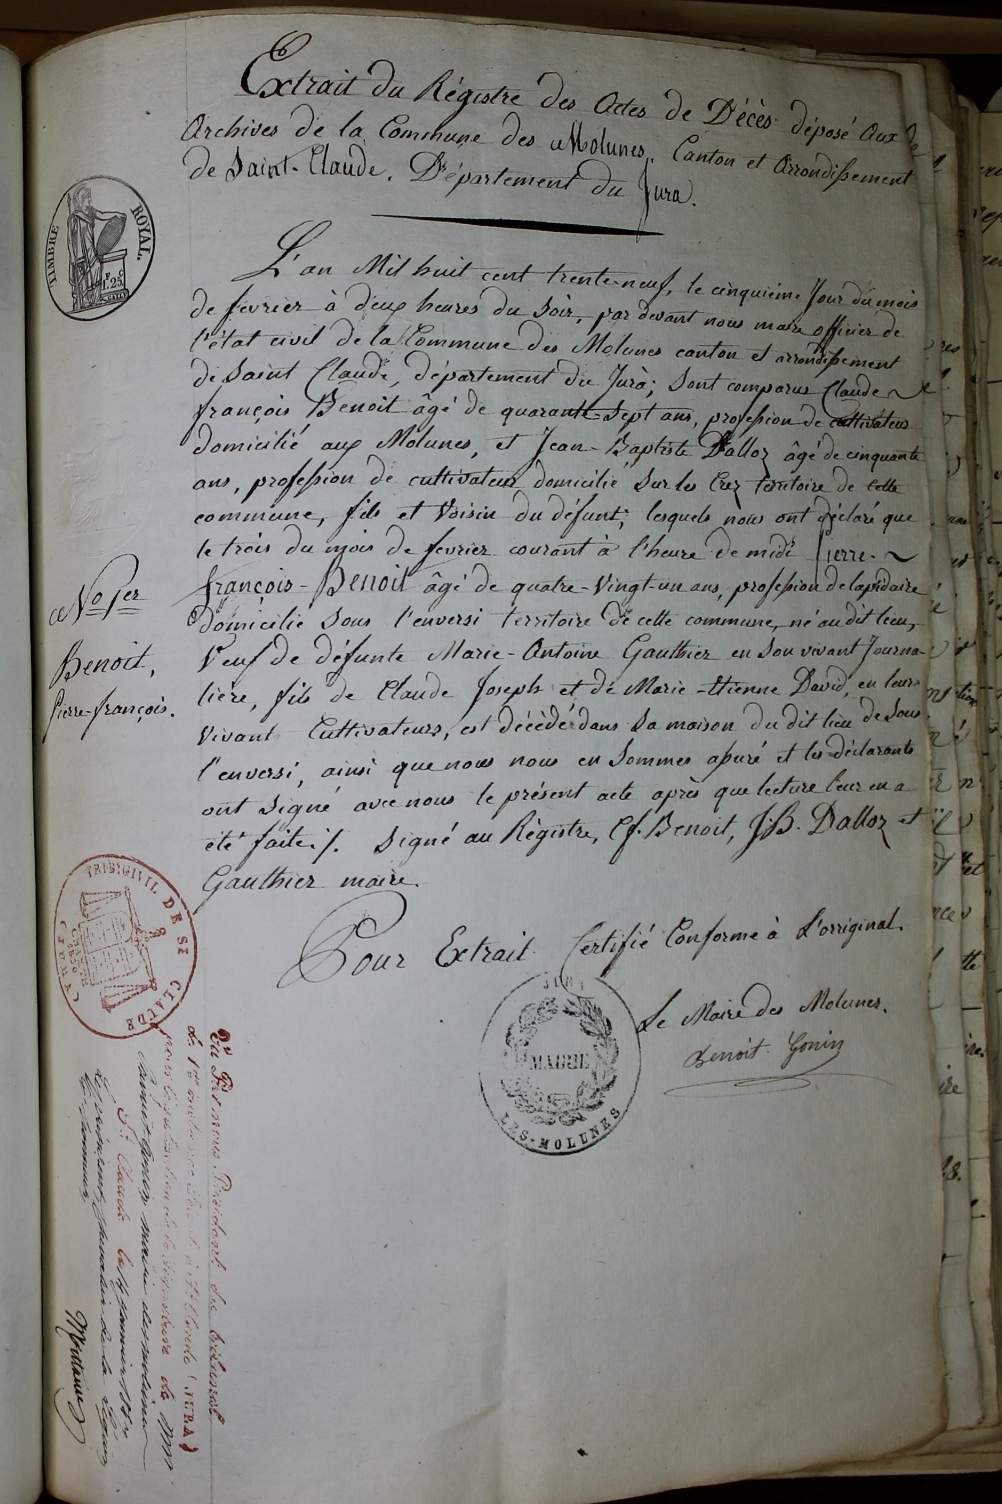 Extrait du Régistre des Actes de Décès déposé aux
Archives de la Commune des Molunes, Canton et Arrondissement
de Saint-Claude, Département du Jura.
TIMBRE ROYAL.
F C
1.25
L'an Mil huit cent trente-neuf, le cinquième Jour du mois
de fevrier à deux heures du Soir, par devant nous maire officier de
l'état civil de la Commune des Molunes canton et arrondissement
de Saint Claude, département du Jura; Sont comparus Claude
françois Benoit âgé de quarante Sept ans, profession de cultivateur
domicilié aux Molunes, et Jean-Baptiste Dalloz âgé de cinquante
ans, profession de cultivateur domicilié Sur les Crez territoire de cette
commune, fils et Voisin du défunt; lesquels nous ont déclaré que
le trois du mois de fevrier courant à l'heure de midi Pierre-
françois-Benoit âgé de quatre-Vingt-un ans, profession de lapidaire
Domicilié Sous l'enversi territoire de cette commune, né au dit lieu,
Veuf de défunte Marie-Antoine Gauthier en Son vivant Journa-
lière, fils de Claude Joseph et de Marie-Etienne David, en leur
Vivant Cultivateurs, est décédé dans Sa maison du dit lieu de Sous
l'enversi, ainsi que nous nous en Sommes apuré et les déclarants
ont Signé avec nous le présent acte après que lecture leur en a
été faite./. Signé au Régistre, C.f. Benoit, J.B. Dalloz et
Gauthier maire.
No 1er
Benoit,
Pierre-françois.
Pour Extrait Certifié Conforme à L'orriginal.
Le Maire des Molunes.
Benoit Gonin
JURA
MAIRIE
LES-MOLUNES
TRIB. CIVIL DE St CLAUDE
(JURA)
CHARTE
1830
Vu Par nous Président du tribunal
de 1re instance de St Claude (JURA)
pour légalisation de la signature de Mr
Benoit Gonin maire des molunes
St Claude le 14 Janvier 18